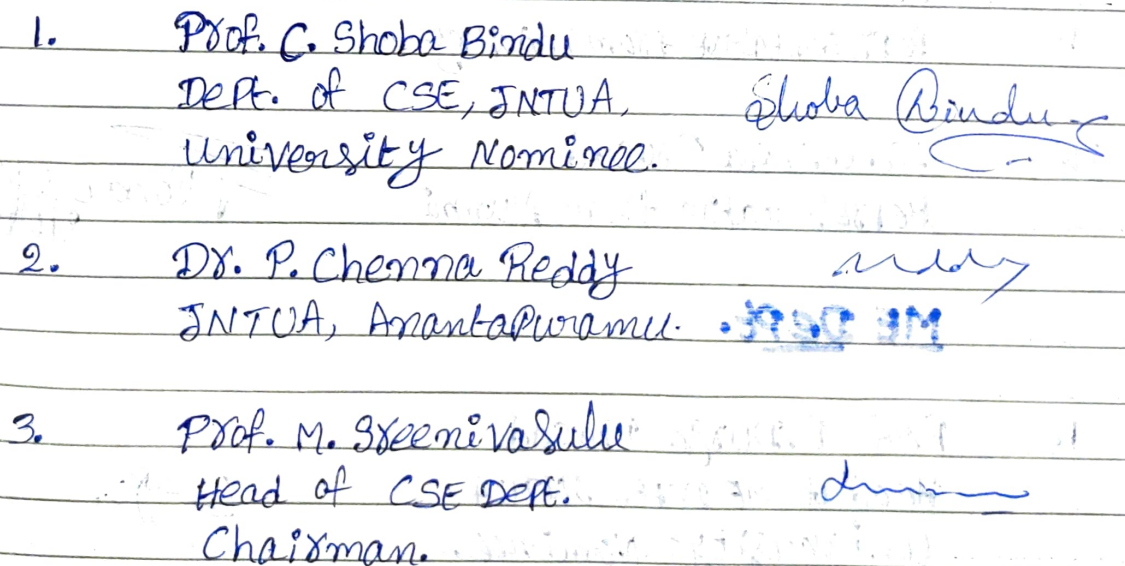 1. Prof. C. Shoba Bindu
Dept. of CSE, JNTUA, Shoba Bindu
University Nominee.
2. Dr. P. Chenna Reddy
JNTUA, Anantapuramu. ME Dept.
3. Prof. M. Sreenivasulu
Head of CSE Dept.
Chairman.